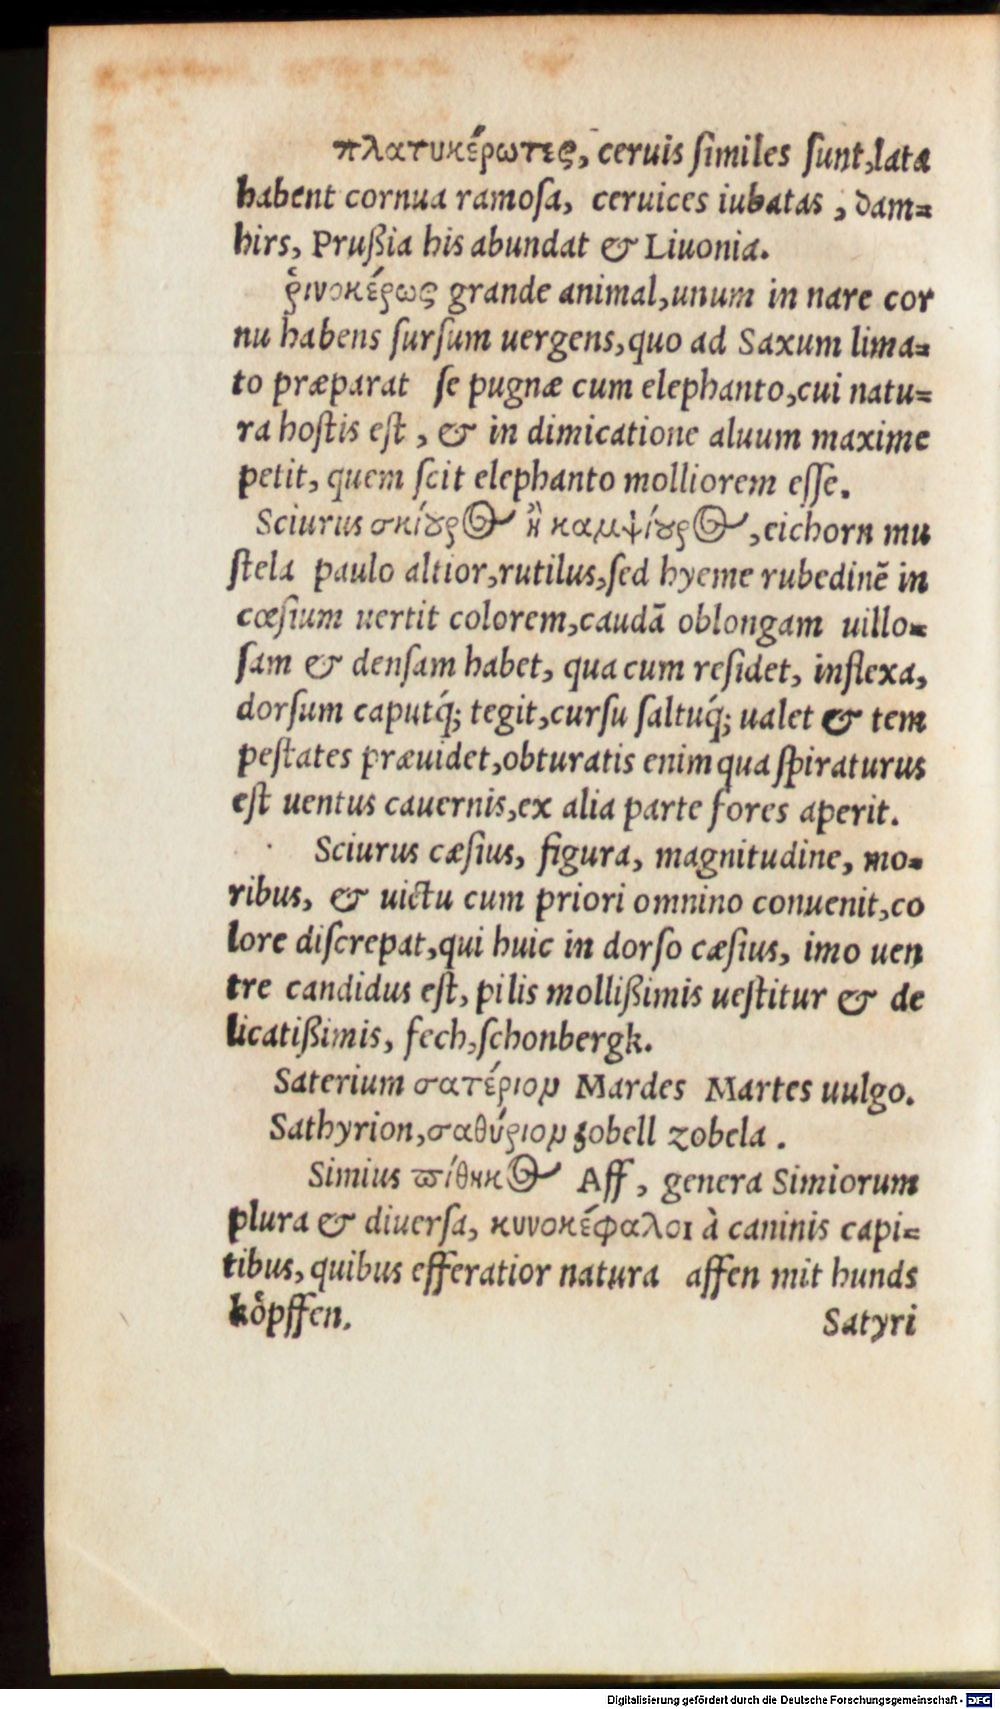 πλατυκέρωτες, ceruis ſimiles ſunt,lata
habent cornua ramoſa, ceruices iubatas , dam=
hirs, Prußia his abundat & Liuonia.
ῥινοκέρως grande animal,unum in nare cor
nu habens ſurſum uergens,quo ad Saxum lima=
to præparat ſe pugnæ cum elephanto,cui natu=
ra hoſtis eſt , & in dimicatione aluum maxime
petit, quem ſcit elephanto molliorem eſſe.
Sciurus σκίȣρος ἢ καμψίȣρος ,eichorn mu
ſtela paulo altior,rutilus,ſed hyeme rubedinē in
cœſium uertit colorem,caudā oblongam uillo=
ſam & denſam habet, qua cum reſidet, inflexa,
dorſum caputq́; tegit,curſu ſaltuq́; ualet & tem
peſtates præuidet,obturatis enim qua ſpiraturus
eſt uentus cauernis,ex alia parte fores aperit.
Sciurus cæſius, figura, magnitudine, mo=
ribus, & uictu cum priori omnino conuenit,co
lore diſcrepat,qui huic in dorſo cæſius, imo uen
tre candidus eſt, pilis mollißimis ueſtitur & de
licatißimis, fech,ſchonbergk.
Saterium σατέριον Mardes Martes uulgo.
Sathyrion,σαθύριον zobell zobela .
Simius πίθηκος Aff , genera Simiorum
plura & diuerſa, κυνοκέφαλοι à caninis capi=
tibus, quibus efferatior natura affen mit hunds
koͤpffen.
Satyri
Digitalisierung gefördert durch die Deutsche Forschungsgemeinschaft - DFG